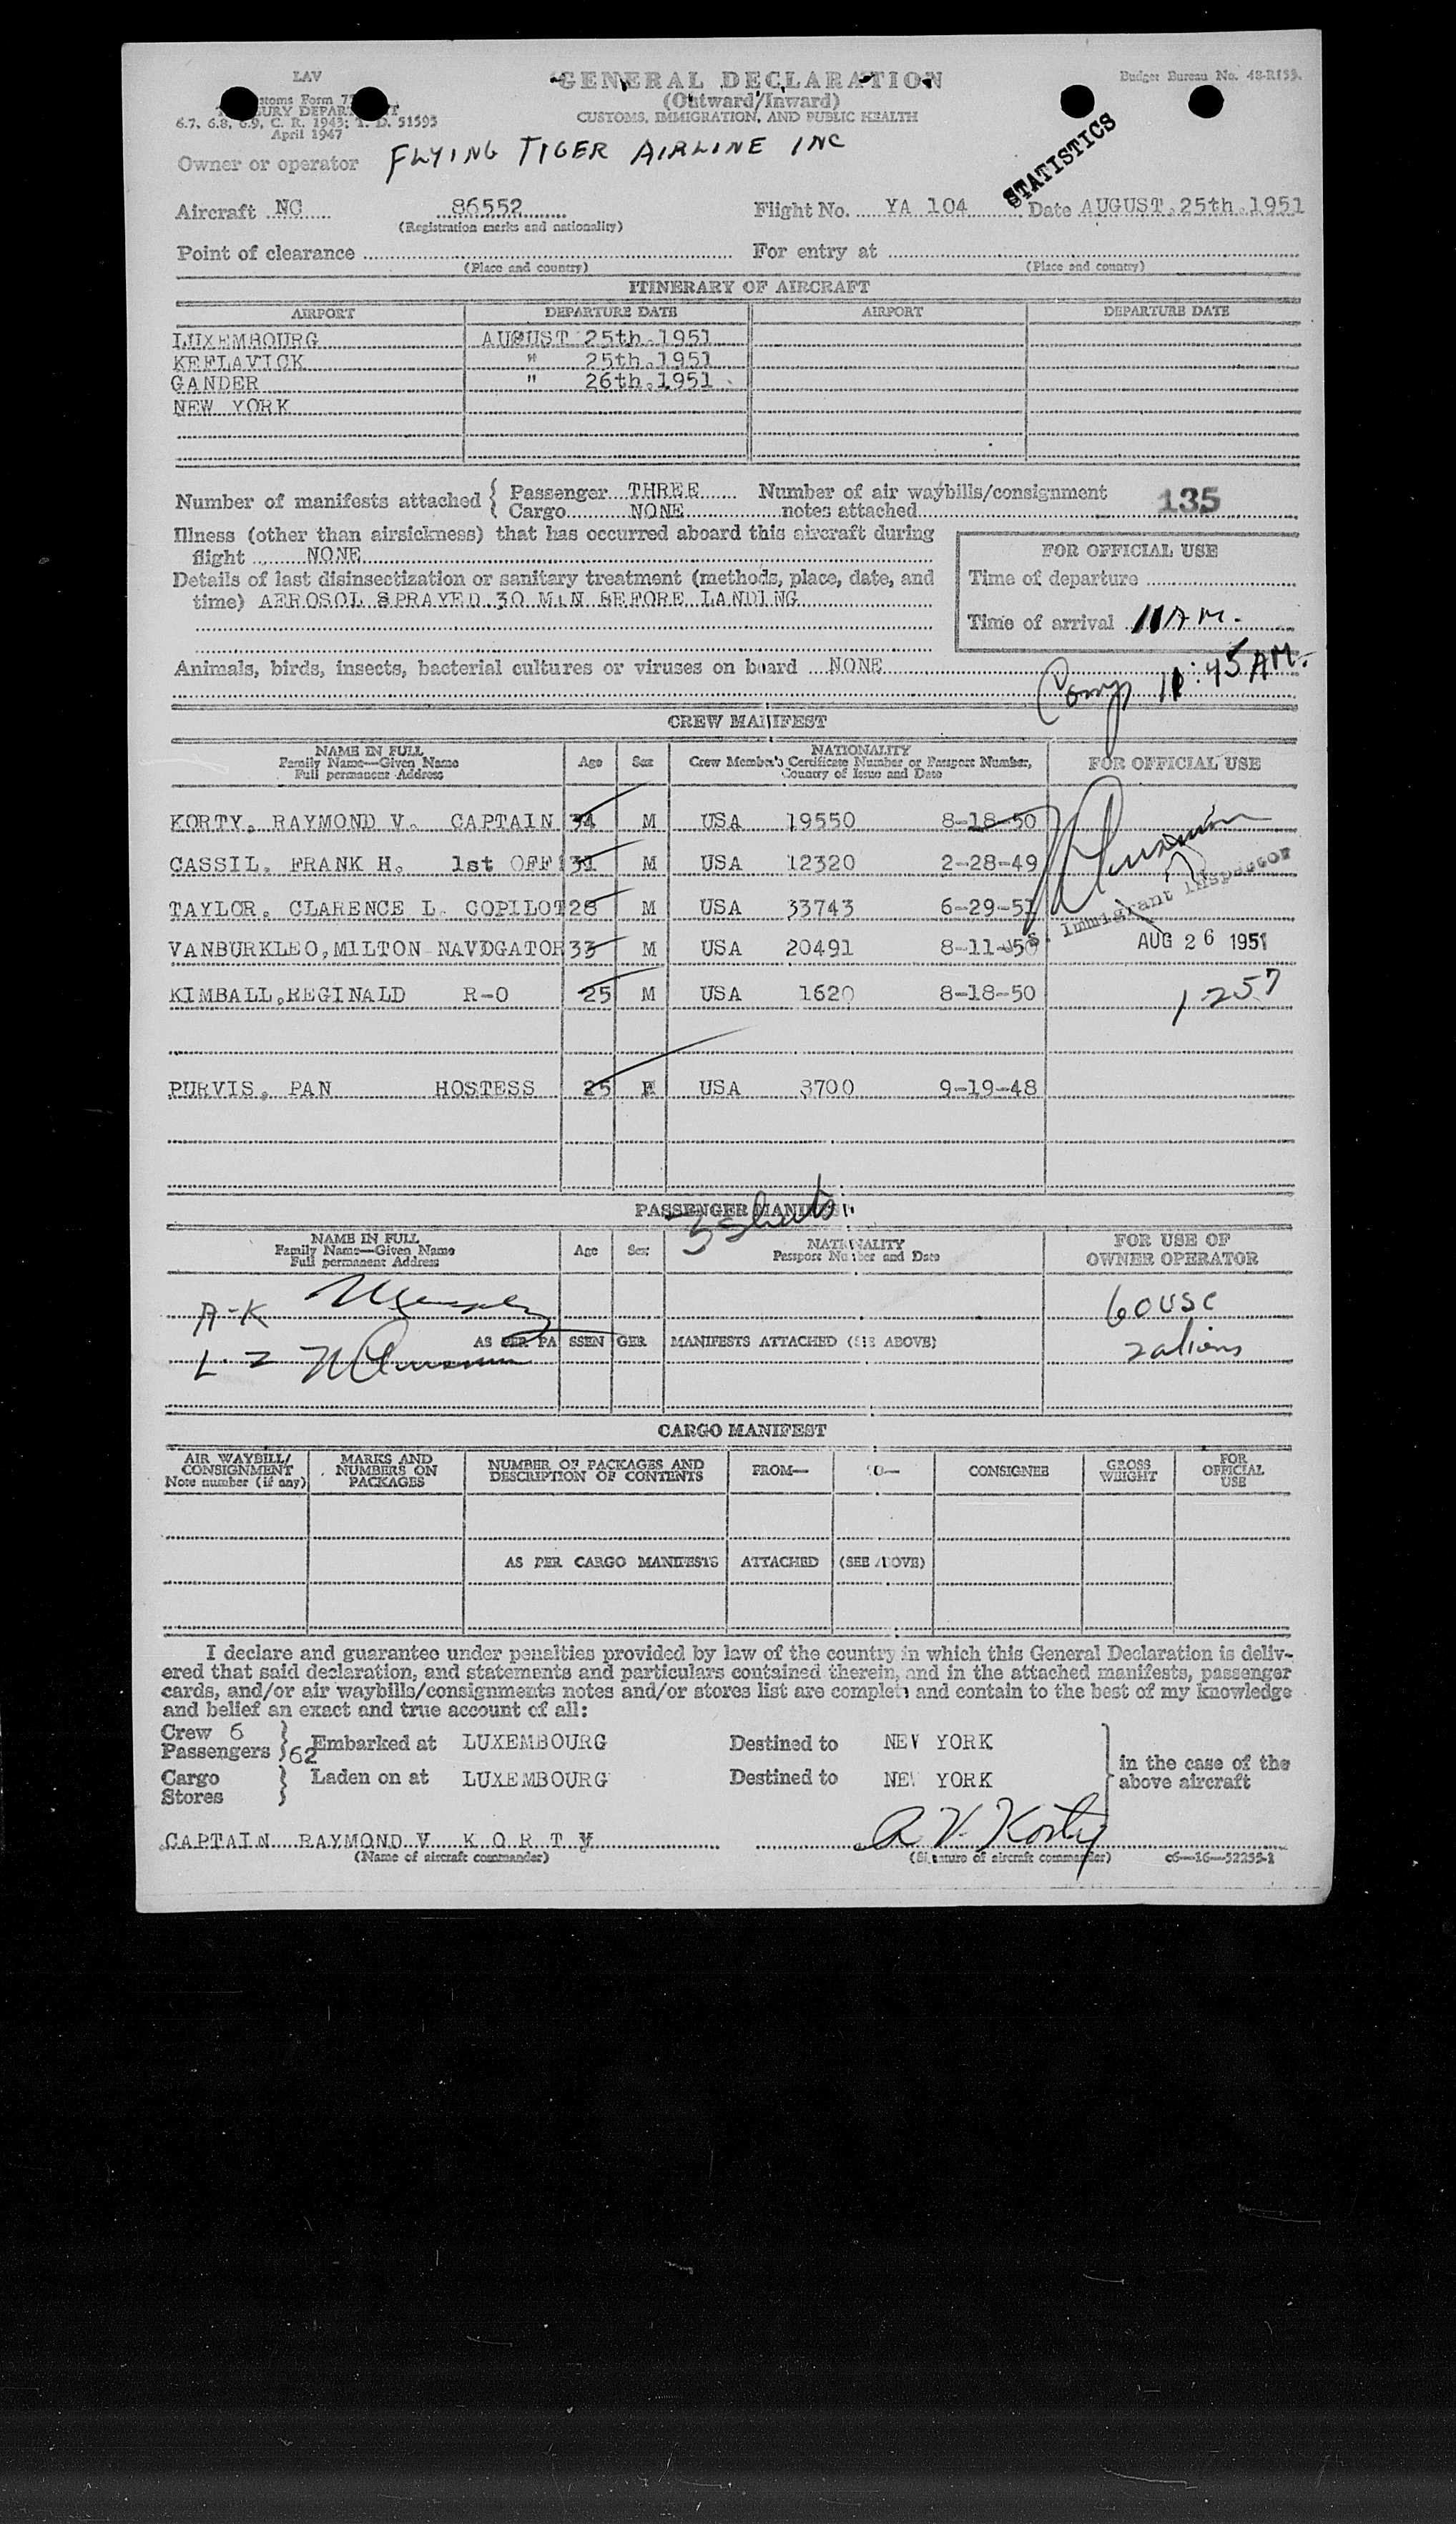 LAV
GENERAL DECLARATION
Budget Bureau No. 48-R199.
(Outward/Inward)
6.7, 6.8, 6.9, C. R. 1943; T. D. 51593
CUSTOMS, IMMIGRATION, AND PUBLIC HEALTH
April 1947
STATISTICS
Owner or operator FLYING TIGER AIRLINE INC
Aircraft NC 86552 Flight No. YA 104 Date AUGUST 25th 1951
(Registration marks and nationality)
Point of clearance For entry at
(Place and country) (Place and country)
ITINERARY OF AIRCRAFT
AIRPORT DEPARTURE DATE AIRPORT DEPARTURE DATE
LUXEMBOURG AUGUST 25th.1951
KEFLAVICK " 25th.1951
GANDER " 26th.1951
NEW YORK
Number of manifests attached { Passenger THREE Number of air waybills/consignment
Cargo NONE notes attached 135
Illness (other than airsickness) that has occurred aboard this aircraft during
flight NONE
FOR OFFICIAL USE
Details of last disinsectization or sanitary treatment (methods, place, date, and
time) AEROSOL SPRAYED 30 MIN BEFORE LANDING
Time of departure
Time of arrival 11 AM.
Animals, birds, insects, bacterial cultures or viruses on board NONE
Comp 11:45 AM.
CREW MANIFEST
NAME IN FULL
Family Name—Given Name
Full permanent Address
Age Sex
NATIONALITY
Crew Member's Certificate Number or Passport Number,
Country of Issue and Date
FOR OFFICIAL USE
KORTY, RAYMOND V. CAPTAIN 34 M USA 19550 8-18-50
CASSIL, FRANK H. 1st OFF 31 M USA 12320 2-28-49
TAYLOR, CLARENCE L. COPILOT 28 M USA 33743 6-29-51
U.S. Immigrant Inspector
VANBURKLEO,MILTON NAVIGATOR 33 M USA 20491 8-11-50
AUG 26 1951
KIMBALL,REGINALD R-O 25 M USA 1620 8-18-50
1257
PURVIS, PAN HOSTESS 25 F USA 3700 9-19-48
PASSENGER MANIFEST
3 sheets
NAME IN FULL
Family Name—Given Name
Full permanent Address
Age Sex
NATIONALITY
Passport Number and Date
FOR USE OF
OWNER OPERATOR
A-K
60 USC
AS PER PASSENGER MANIFESTS ATTACHED (SEE ABOVE)
L-Z
2 aliens
CARGO MANIFEST
AIR WAYBILL/
CONSIGNMENT
Note number (if any)
MARKS AND
NUMBERS ON
PACKAGES
NUMBER OF PACKAGES AND
DESCRIPTION OF CONTENTS
FROM— TO— CONSIGNEE
GROSS
WEIGHT
FOR
OFFICIAL
USE
AS PER CARGO MANIFESTS ATTACHED (SEE ABOVE)
I declare and guarantee under penalties provided by law of the country in which this General Declaration is deliv-
ered that said declaration, and statements and particulars contained therein, and in the attached manifests, passenger
cards, and/or air waybills/consignments notes and/or stores list are complete and contain to the best of my knowledge
and belief an exact and true account of all:
Crew 6
Passengers 62 } Embarked at LUXEMBOURG Destined to NEW YORK
in the case of the
above aircraft
Cargo
Stores } Laden on at LUXEMBOURG Destined to NEW YORK
CAPTAIN RAYMOND V K O R T Y R V. Korty
(Name of aircraft commander) (Signature of aircraft commander) c6—16—52255-1